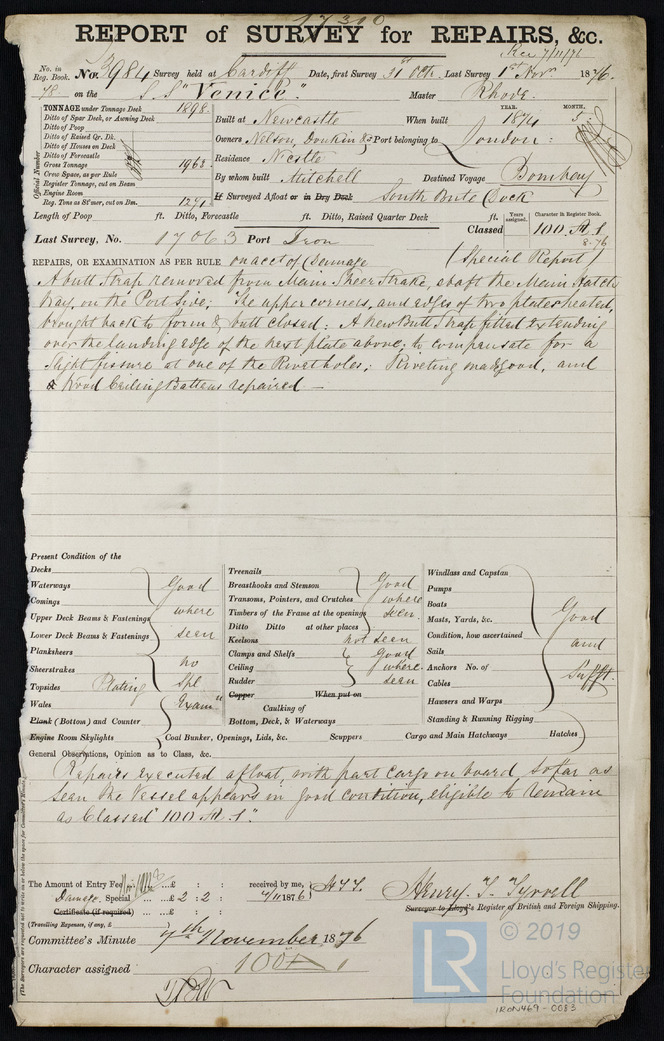 17300
REPORT of SURVEY for REPAIRS, &c.
Rec 7/11/76
No. in Reg. Book. No. 3984 Survey held at Cardiff Date, first Survey 31st Octr. Last Survey 1st Novr. 1876.
78 on the S.S "Venice" Master Rhode.
TONNAGE under Tonnage Deck 1898.
Ditto of Spar Deck, or Awning Deck
Ditto of Poop
Ditto of Raised Qr. Dk.
Ditto of Houses on Deck
Ditto of Forecastle
Gross Tonnage 1963
Crew Space, as per Rule
Register Tonnage, cut on Beam
Engine Room
Reg. Tons as St'mer, cut on Bm. 1271
Official Number
Built at Newcastle When built YEAR. 1874 MONTH. 5
Owners Nelson, Donkin & Co Port belonging to London
Residence N'cstle
By whom built Mitchell Destined Voyage Bombay
If Surveyed Afloat or in Dry Dock South Bute Dock
Length of Poop ft. Ditto, Forecastle ft. Ditto, Raised Quarter Deck ft.
Years assigned. Character in Register Book.
Classed 100 A. 1
8.76
Last Survey, No. 17063 Port Iron
REPAIRS, OR EXAMINATION AS PER RULE on acct of Damage (Special Report)
A butt Strap removed from Main Sheer Strake, abaft the Main Hatch
Way, on the Port Side; The upper corners, and edges of two plates heated,
brought back to form & butt closed: A new Butt Strap fitted extending
over the landing edge of the next plate above; to compensate for a
slight fissure at one of the Rivet holes; Riveting made good, and
Wood Ceiling Battens repaired —
Present Condition of the
Decks
Waterways
Comings
Upper Deck Beams & Fastenings
Lower Deck Beams & Fastenings
Planksheers
Sheerstrakes
Topsides Plating
Wales
Plank (Bottom) and Counter
Engine Room Skylights
Good
where
seen
no
Spl
Exam"
Treenails
Breasthooks and Stemson
Transoms, Pointers, and Crutches
Timbers of the Frame at the openings
Ditto Ditto at other places
Good
where
seen
Keelsons not seen
Clamps and Shelfs
Ceiling
Rudder
good
where
seen
Copper When put on
Caulking of
Bottom, Deck, & Waterways
Windlass and Capstan
Pumps
Boats
Masts, Yards, &c.
Condition, how ascertained
Sails
Anchors No. of
Cables
Hawsers and Warps
Standing & Running Rigging
Good
and
Sufft.
Coal Bunker, Openings, Lids, &c. Scuppers Cargo and Main Hatchways Hatches
General Observations, Opinion as to Class, &c.
Repairs executed afloat, with part cargo on board, so far as
seen the Vessel appears in good condition, eligible to remain
as Classed "100 A. 1".
The Amount of Entry Fee ... £ : : received by me,
Damage, Special ... £ 2 : 2 : 4/11 1876 H.T.T.
Certificate (if required) ... £ : :
(Travelling Expenses, if any, £
Henry. T. Tyrrell
Surveyor to Lloyd's Register of British and Foreign Shipping.
Committee's Minute 7th November 1876
Character assigned 100A1
© 2019
LR
Lloyd's Register
Foundation
IRON469-0083